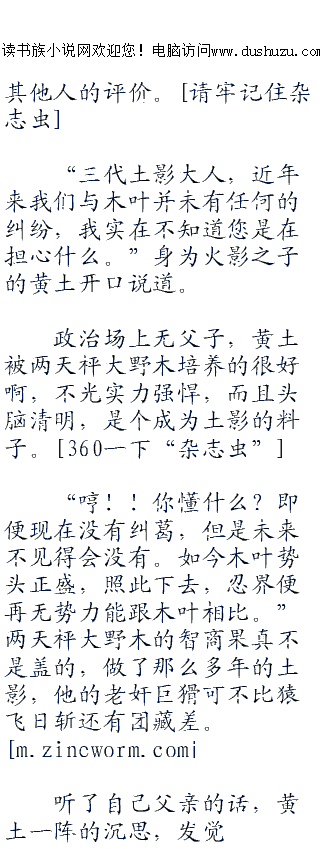 读书族小说网欢迎您！电脑访问www.dushuzu.com
其他人的评价。[请牢记住杂
志虫]
“三代土影大人，近年
来我们与木叶并未有任何的
纠纷，我实在不知道您是在
担心什么。”身为火影之子
的黄土开口说道。
政治场上无父子，黄土
被两天秤大野木培养的很好
啊，不光实力强悍，而且头
脑清明，是个成为土影的料
子。[360一下“杂志虫”]
“哼！！你懂什么？即
便现在没有纠葛，但是未来
不见得会没有。如今木叶势
头正盛，照此下去，忍界便
再无势力能跟木叶相比。”
两天秤大野木的智商果真不
是盖的，做了那么多年的土
影，他的老奸巨猾可不比猿
飞日斩还有团藏差。
[m.zincworm.com]
听了自己父亲的话，黄
土一阵的沉思，发觉